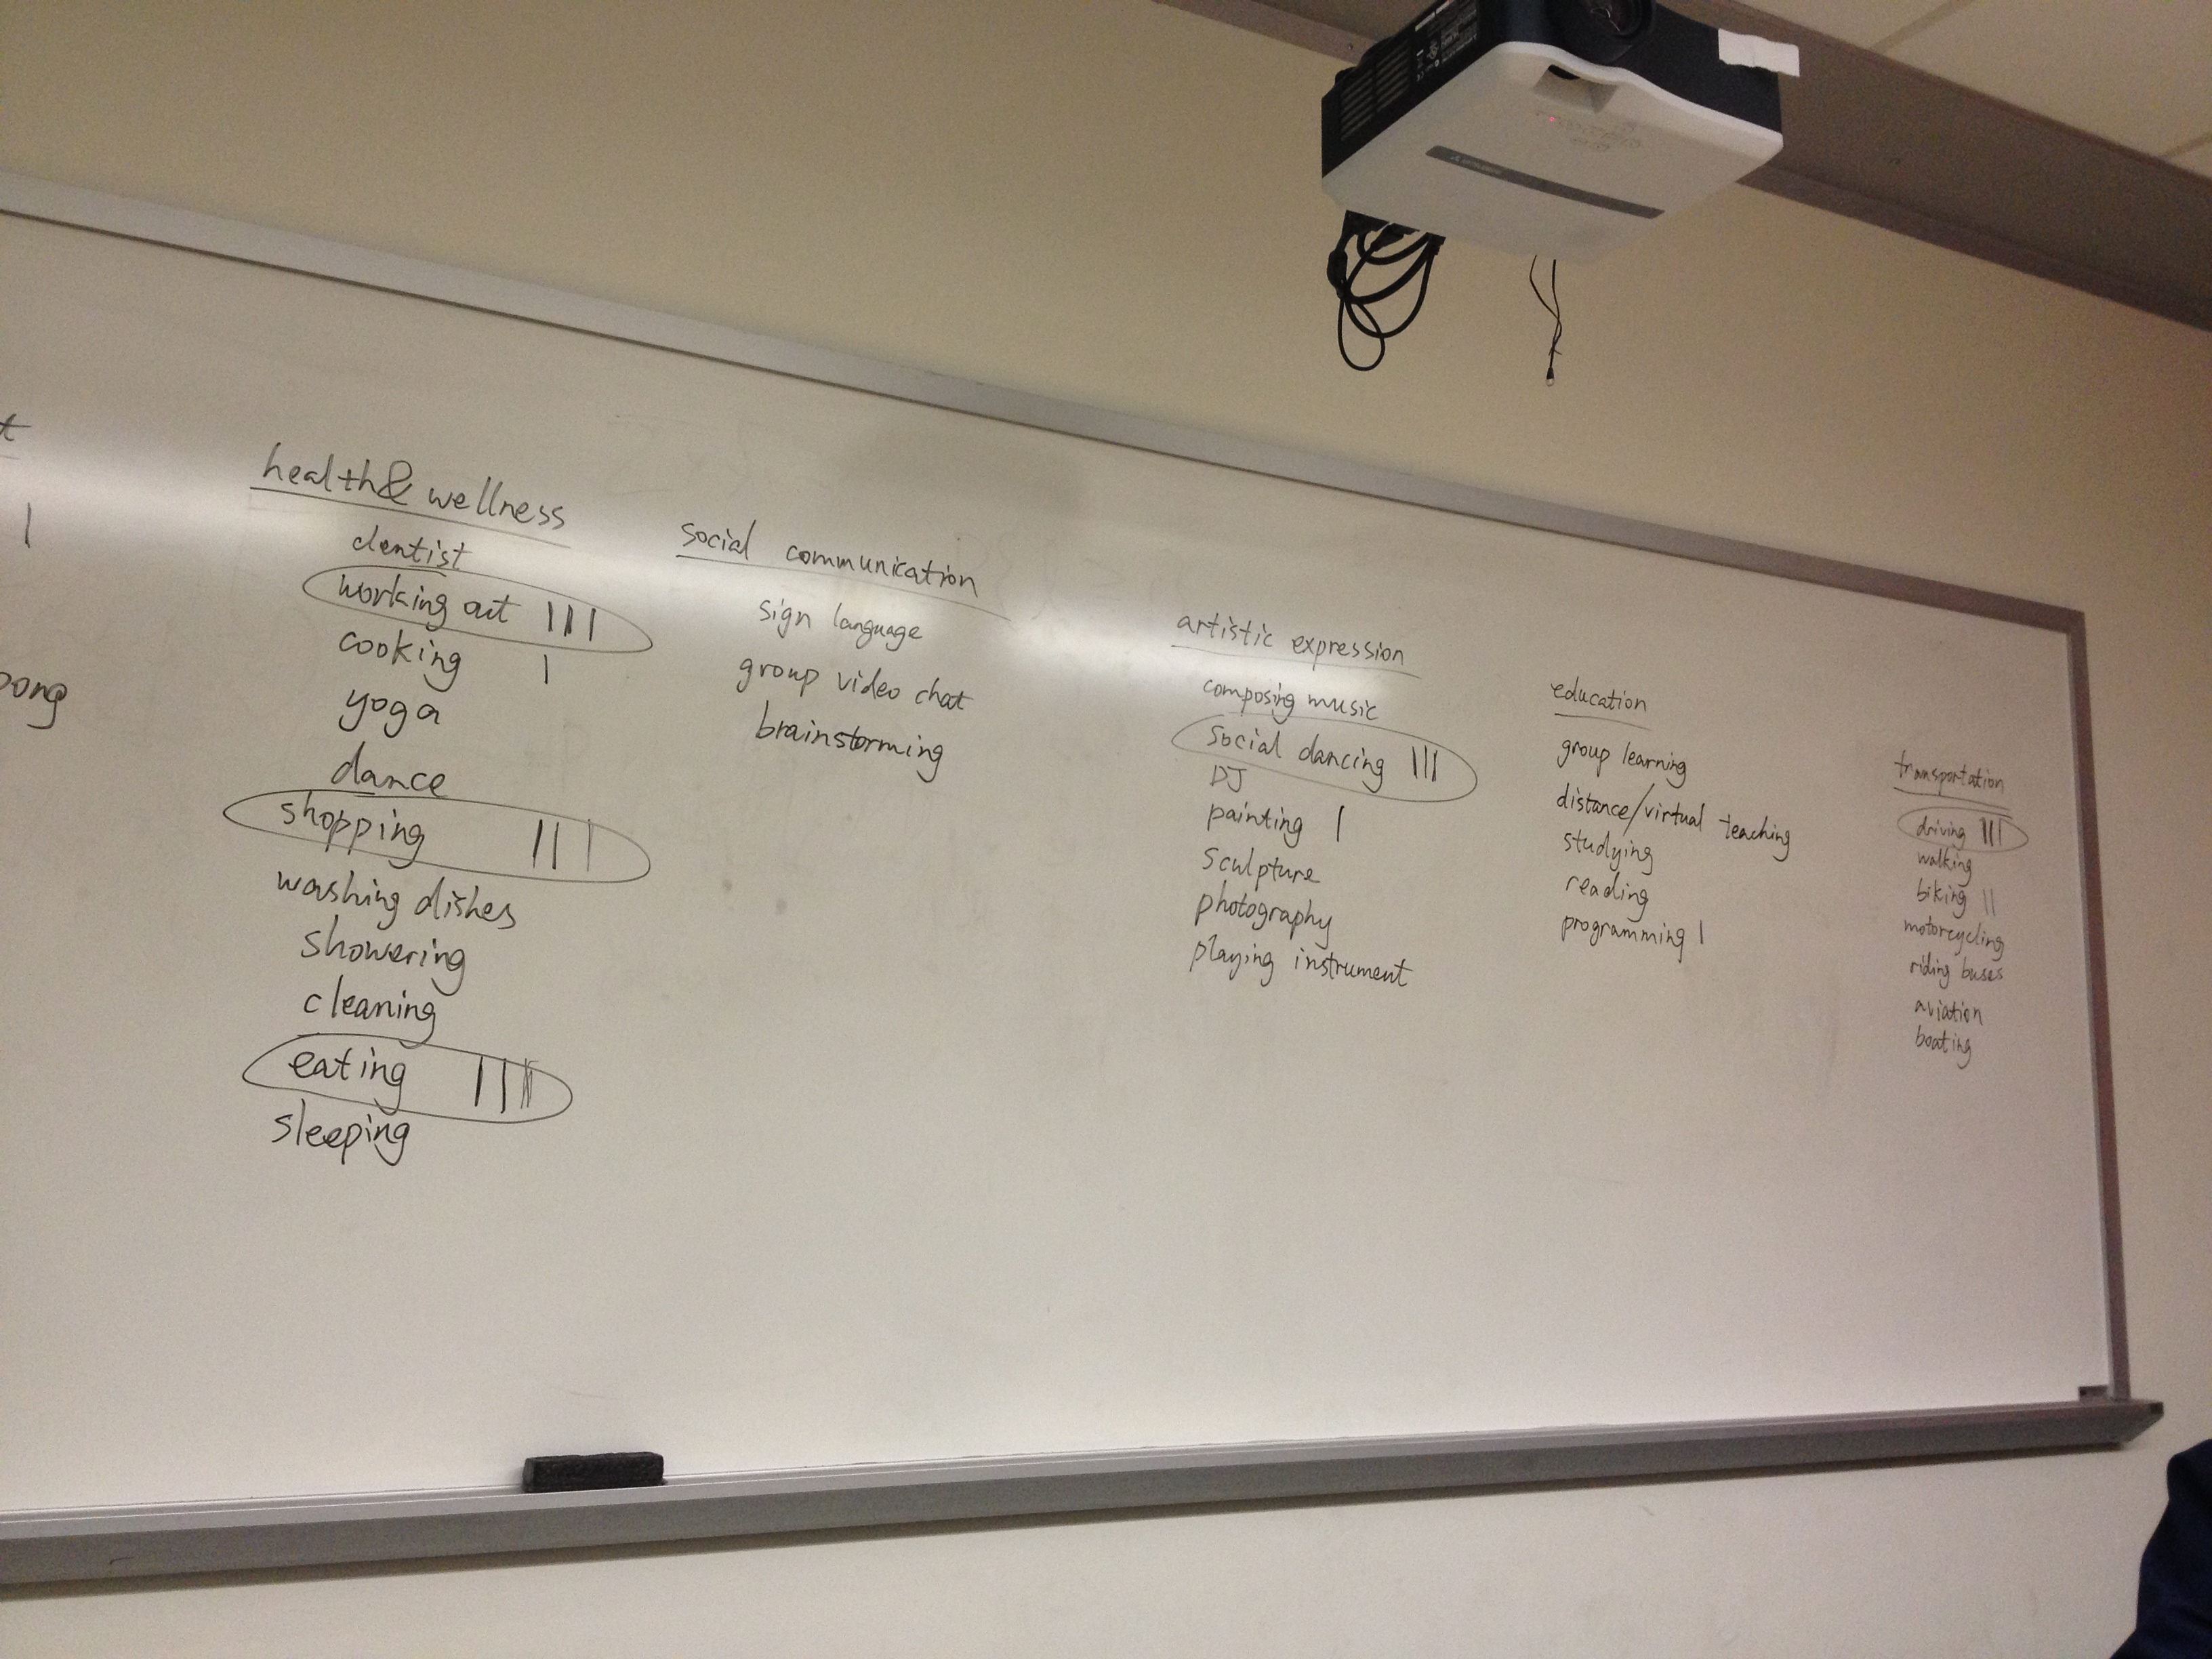 health & wellness
dentist
working out |||
cooking |
yoga
dance
shopping |||
washing dishes
showering
cleaning
eating
sleeping
social communication
sign language
group video chat
brainstorming
artistic expression
composing music
social dancing |||
DJ
painting |
sculpture
photography
playing instrument
education
group learning
distance/virtual teaching
studying
reading
programming |
transportation
driving |||
walking
biking ||
motorcycling
riding buses
aviation
boating